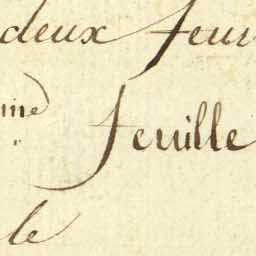 deux feui
feuille
le